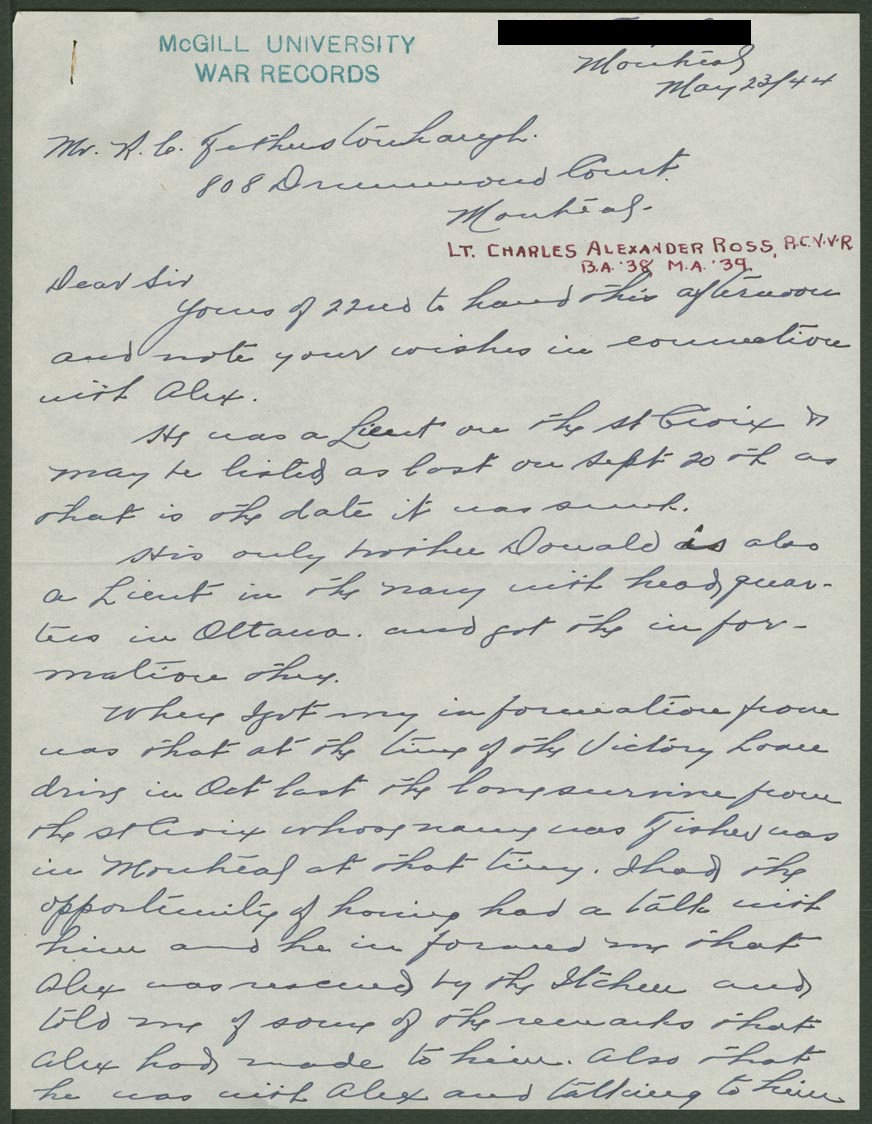 McGILL UNIVERSITY
WAR RECORDS
Montreal
May 23/44
Mr. R. C. Fetherstonhaugh.
808 Drummond Court.
Montreal.
LT. CHARLES ALEXANDER ROSS, R.C.N.V.R
B.A. '38 M.A. '39.
Dear Sir
Yours of 22nd to hand this afternoon
and note your wishes in connection
with Alex.
He was a Lieut on the St Croix &
may be listed as lost on Sept 20th as
that is the date it was sunk.
His only brother Donald is also
a Lieut in the navy with headquar-
ters in Ottawa. and got the infor-
mation there.
Where I got my information from
was that at the time of the Victory Loan
drive in Oct last the lone survivor from
the St Croix whose name was Fisher was
in Montreal at that time. I had the
opportunity of having had a talk with
him and he informed me that
Alex was rescued by the Itchen and
told me of some of the remarks that
Alex had made to him. Also that
he was with Alex and talking to him